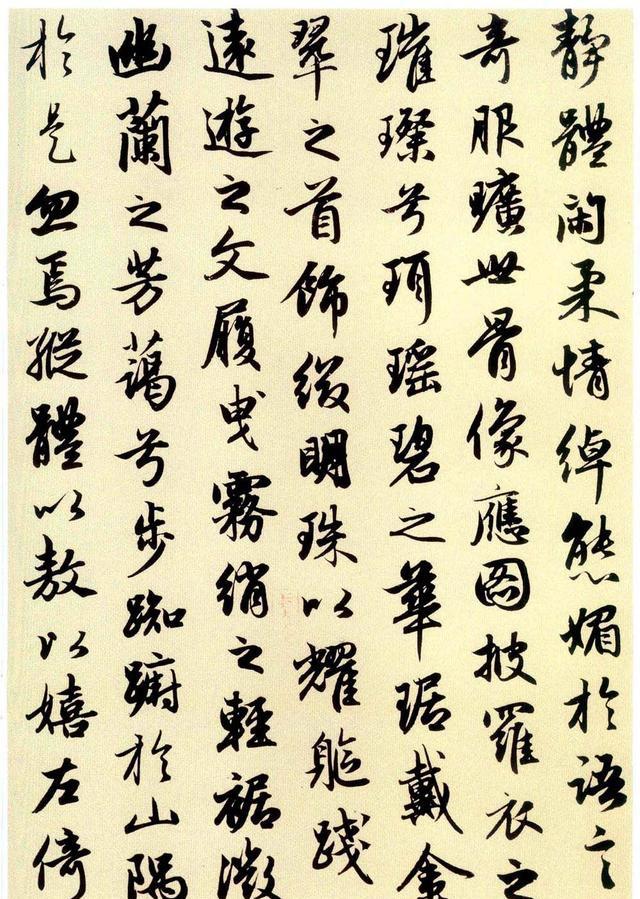 靜體閑柔情綽態媚於語言
奇服曠世骨像應圖披羅衣之
璀璨兮珥瑶碧之華琚戴金
翠之首飾綴明珠以耀軀踐
遠遊之文履曳霧綃之輕裾微
幽蘭之芳藹兮步踟躕於山隅
於是忽焉縱體以敖以嬉左倚